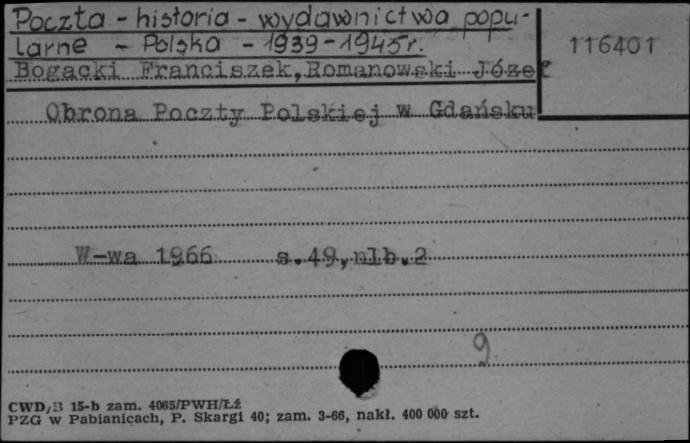 Poczta - historia - wydawnictwa popu-
larne - Polska - 1939-1945r.
116401
Bogacki Franciszek, Romanowski Józef
Obrona Poczty Polskiej w Gdańsku
W-wa 1966 s.49,nlb.2
9
CWD/B 15-b zam. 4065/PWH/Łź
PZG w Pabianicach, P. Skargi 40; zam. 3-66, nakł. 400 000 szt.